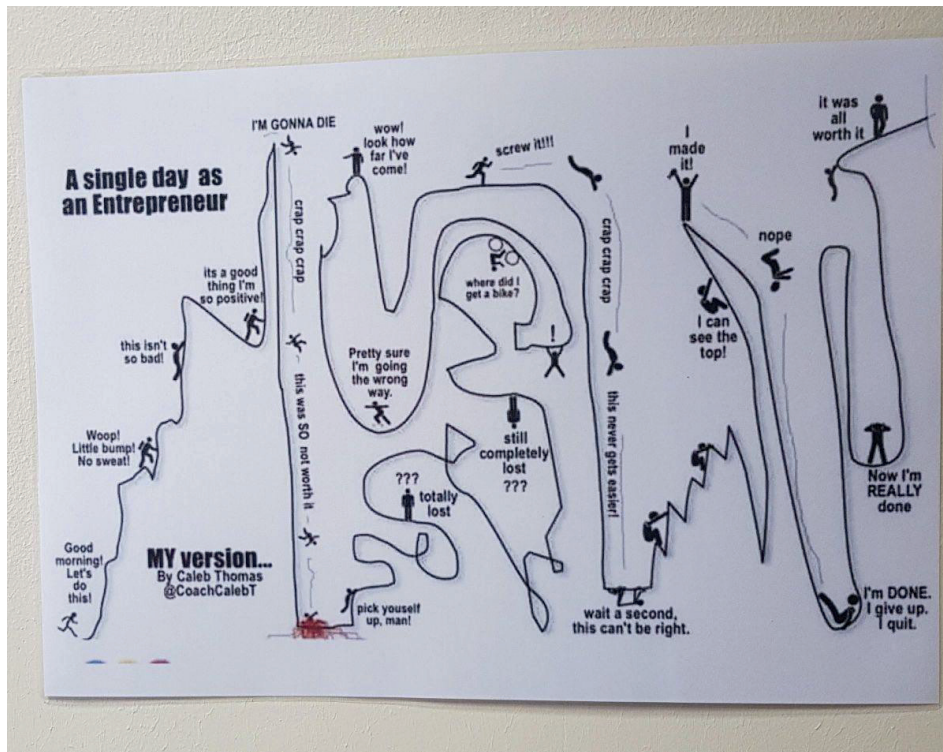 A single day as
an Entrepreneur
Good
morning!
Let's
do
this!
Woop!
Little bump!
No sweat!
this isn't
so bad!
its a good
thing I'm
so positive!
I'M GONNA DIE
crap crap crap
this was SO not worth it
MY version...
By Caleb Thomas
@CoachCalebT
pick youself
up, man!
???
totally
lost
Pretty sure
I'm going
the wrong
way.
wow!
look how
far I've
come!
still
completely
lost
???
!
where did I
get a bike?
screw it!!!
crap crap crap
this never gets easier!
wait a second,
this can't be right.
I can
see the
top!
I
made
it!
nope
I'm DONE.
I give up.
I quit.
Now I'm
REALLY
done
it was
all
worth it